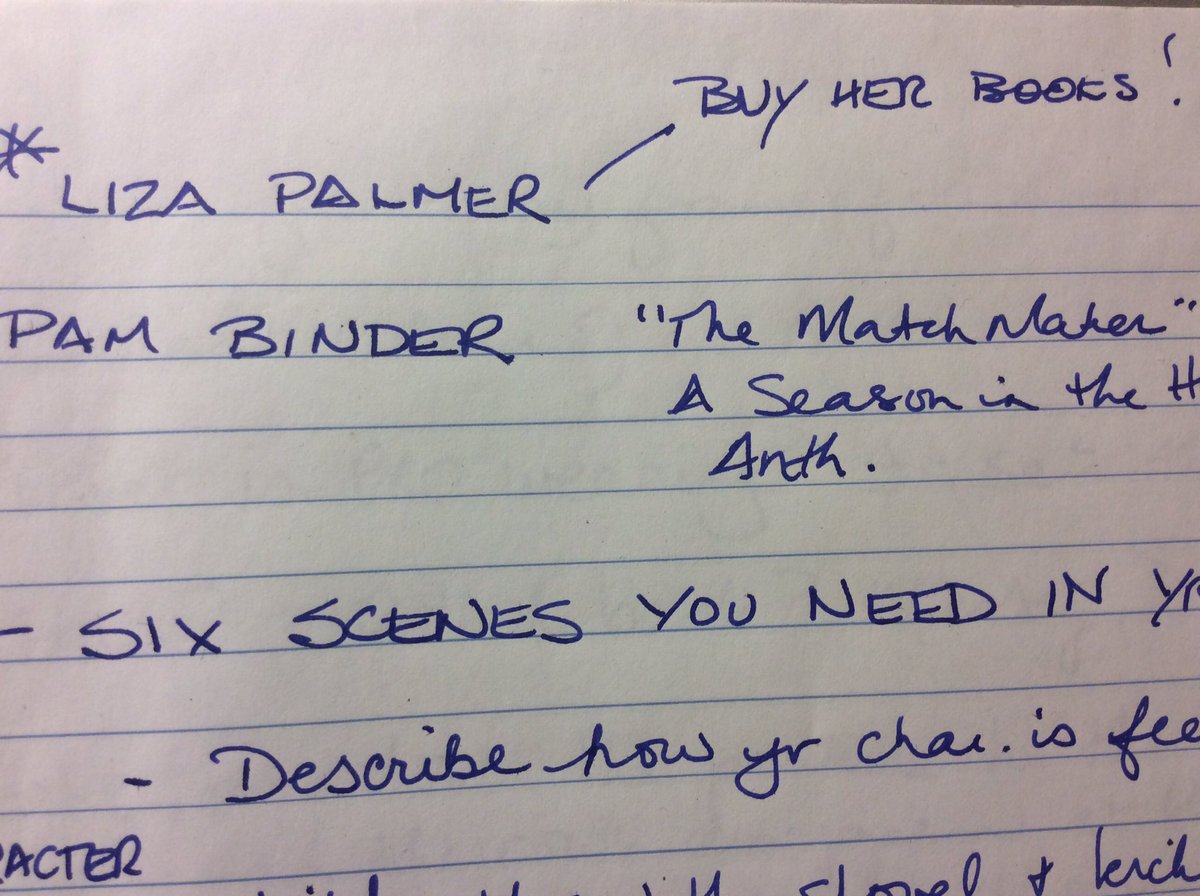 BUY HER BOOKS!
* LIZA PALMER
PAM BINDER "The Match Maker"
A Season in the H
Anth.
- SIX SCENES YOU NEED IN Yr
- Describe how yr char. is fee
RACTER
shovel &